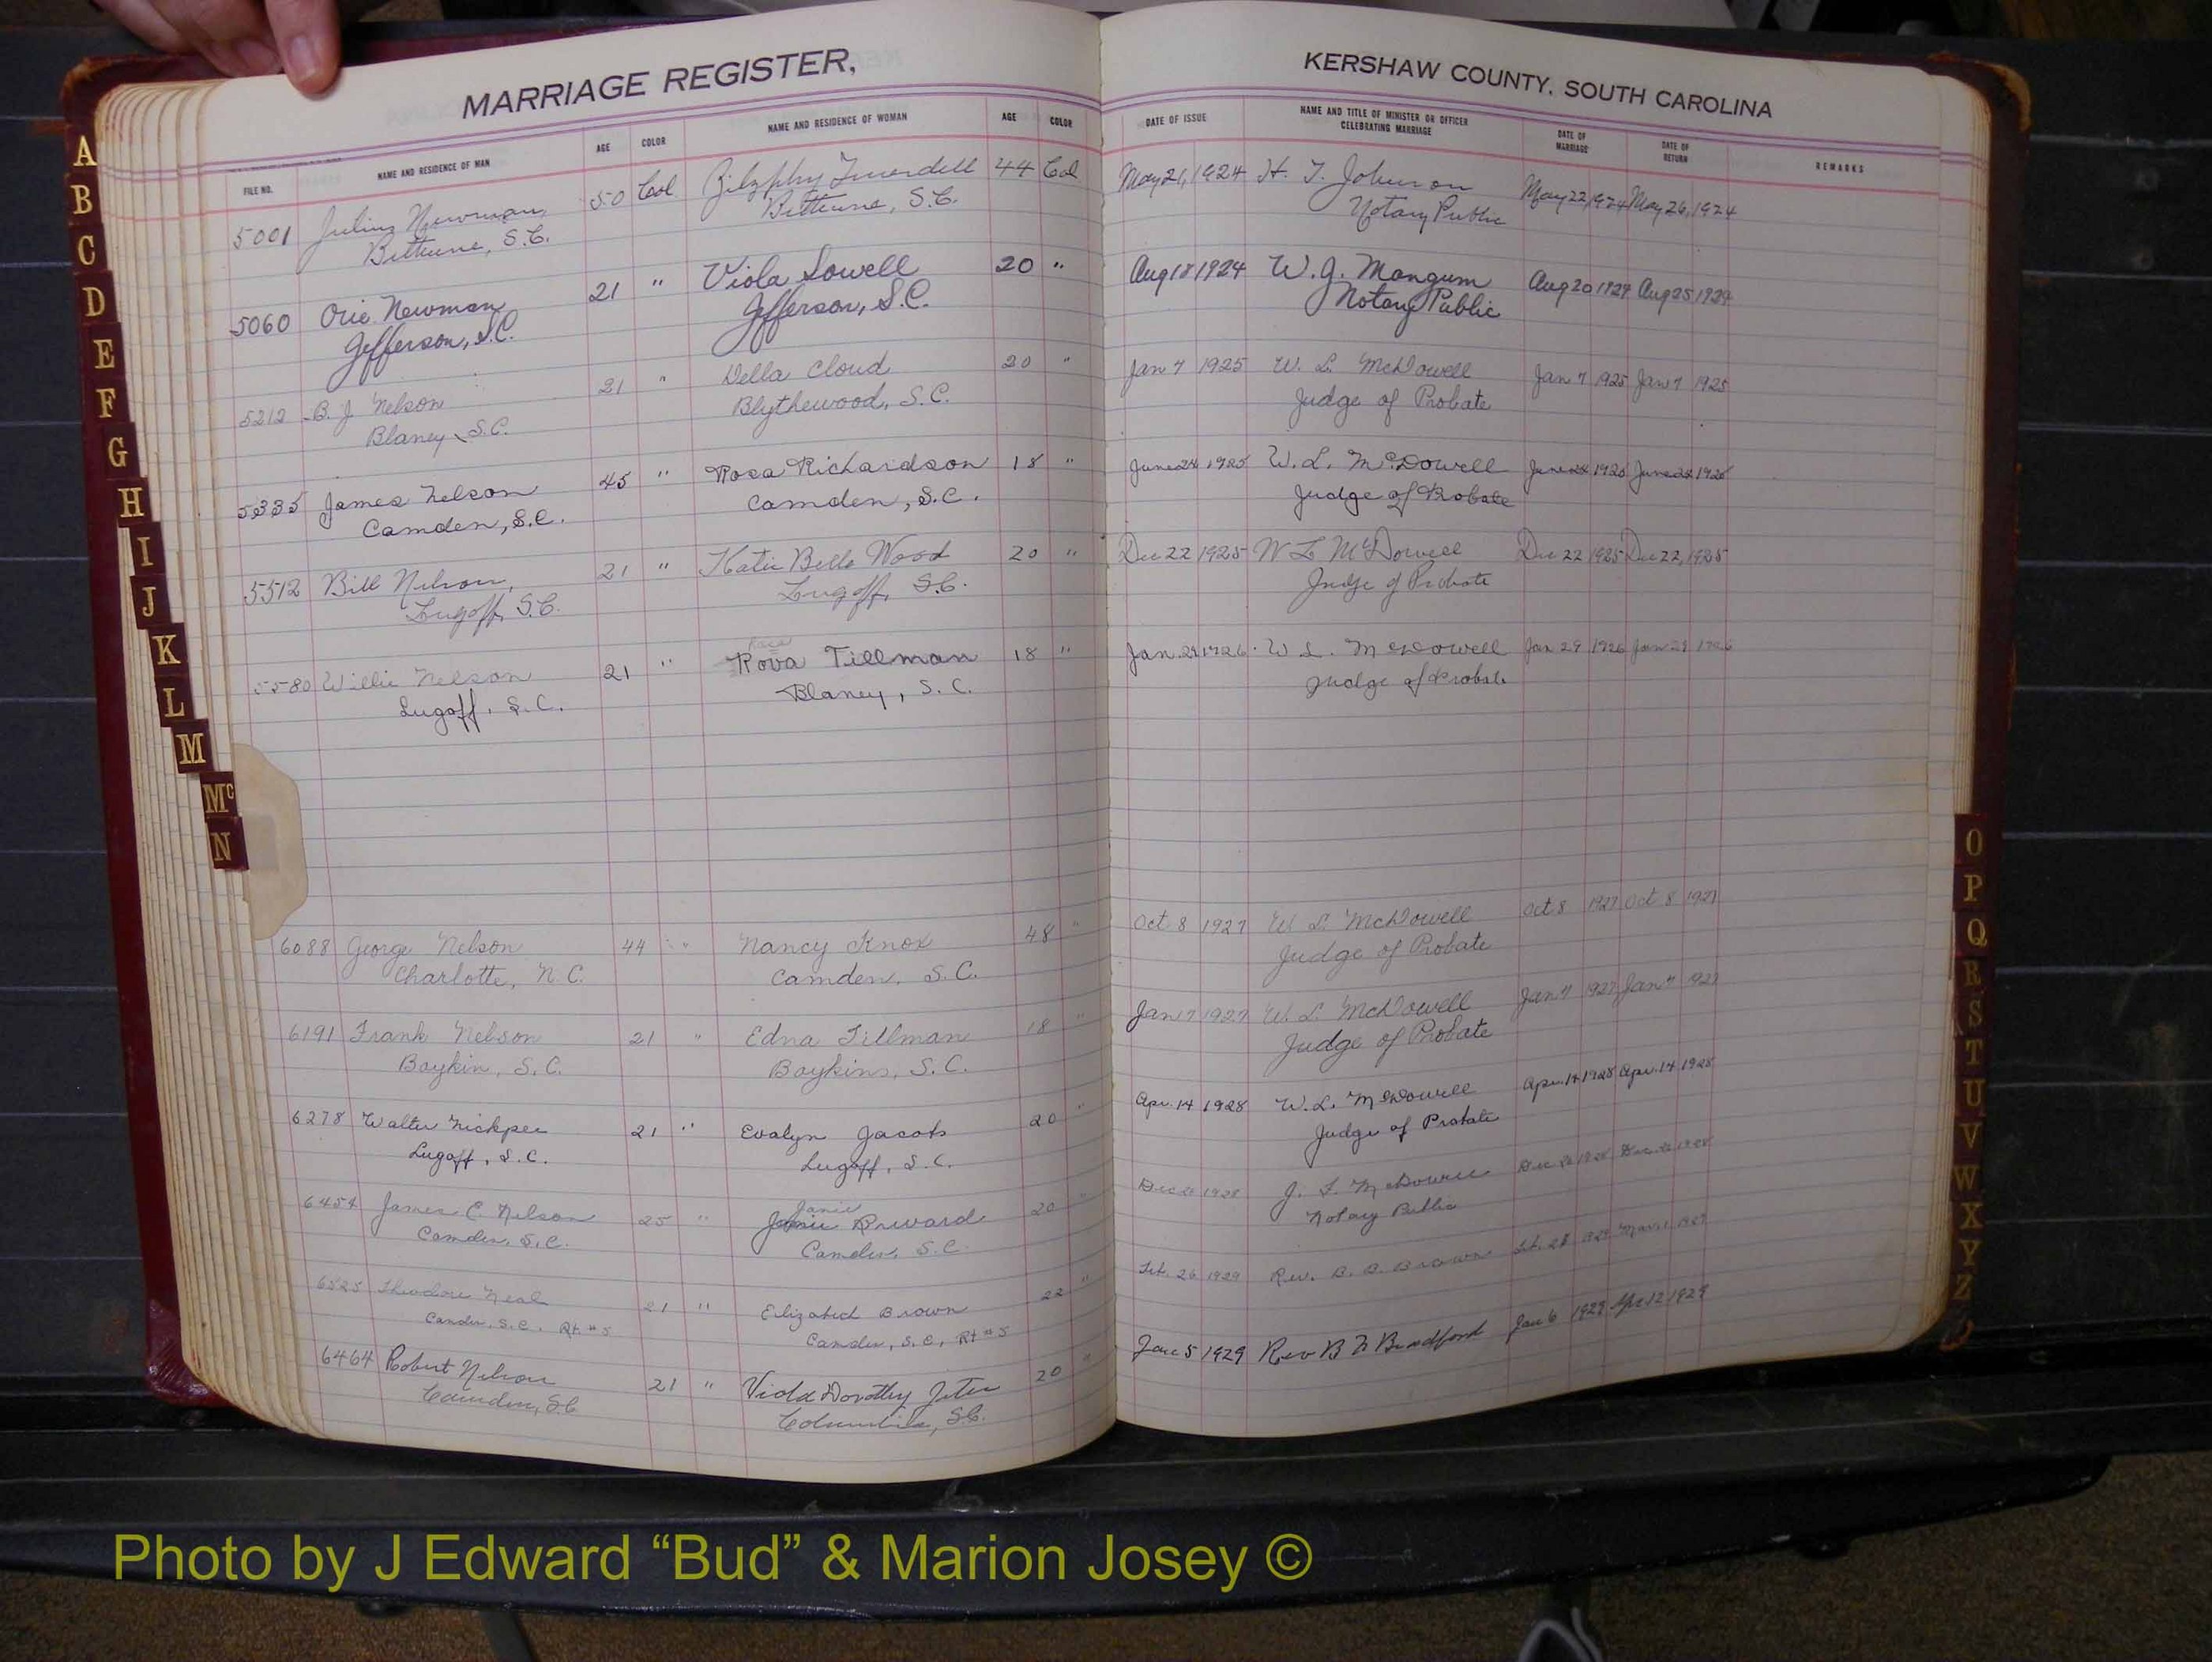 MARRIAGE REGISTER,
KERSHAW COUNTY, SOUTH CAROLINA
FILE NO. NAME AND RESIDENCE OF MAN AGE COLOR NAME AND RESIDENCE OF WOMAN AGE COLOR DATE OF ISSUE NAME AND TITLE OF MINISTER OR OFFICER CELEBRATING MARRIAGE DATE OF MARRIAGE DATE OF RETURN REMARKS
5001 Julius Newman, 50 Col 44 Col May 21, 1924 H. T. Johnson May 22, 1924 May 26, 1924
Bethune, S.C. Bethune, S.C. Notary Public
5060 Orie Newman 21 " Viola Sowell 20 " Aug 18 1924 W. J. Mangum Aug 20 1924 Aug 25 1924
Jefferson, S.C. Jefferson, S.C. Notary Public
5212 B. J. Nelson 21 " Della Cloud 20 " Jan 7 1925 W. L. McDowell Jan 7 1925 Jan 7 1925
Blaney, S.C. Blythewood, S.C. Judge of Probate
5335 James Nelson 45 " Rosa Richardson 18 " June 24 1925 W. L. McDowell June 24 1925 June 24 1925
Camden, S.C. Camden, S.C. Judge of Probate
5512 Bill Nelson, 21 " Katie Belle Wood 20 " Dec 22 1925 W L McDowell Dec 22 1925 Dec 22, 1925
Lugoff, S.C. Lugoff, S.C. Judge of Probate
5580 Willie Nelson 21 " Rova Tillman 18 " Jan. 29 1926 W. L. McDowell Jan 29 1926 Jan 29 1926
Lugoff, S.C. Blaney, S.C. Judge of Probate
6088 George Nelson 44 " Nancy Knox 48 " Oct 8 1927 W. L. McDowell Oct 8 1927 Oct 8 1927
Charlotte, N.C. Camden, S.C. Judge of Probate
6191 Frank Nelson 21 " Edna Tillman 18 " Jan 7 1927 W. L. McDowell Jan 7 1927 Jan 7 1927
Boykin, S.C. Boykins, S.C. Judge of Probate
6278 Walter Nickpee 21 " Evalyn Jacobs 20 " Apr. 14 1928 W. L. McDowell Apr. 14 1928 Apr. 14 1928
Lugoff, S.C. Lugoff, S.C. Judge of Probate
Janie
6454 James E. Nelson 25 " 20 " Dec 26 1928 J. F. McDowell Dec 26 1928 Dec. 26 1928
Camden, S.C. Camden, S.C. Notary Public
6525 Theodore Neal 21 " Elizabeth Brown 22 " Feb. 26 1929 Rev. B. B. Brown Feb. 28 1929 Mar. 1 1929
Camden, S.C. Rt. #5 Camden, S.C., Rt #5
6464 Robert Nelson 21 " Viola Dorothy Jeter 20 " Jan 5 1929 Rev B F Bradford Jan 6 1929 Apr 12 1929
Camden, S.C Columbia, S.C.
A
B
C
D
E
F
G
H
I
J
K
L
M
Mc
N
O
P
Q
R
S
T
U
V
W
X
Y
Z
Photo by J Edward “Bud” & Marion Josey ©